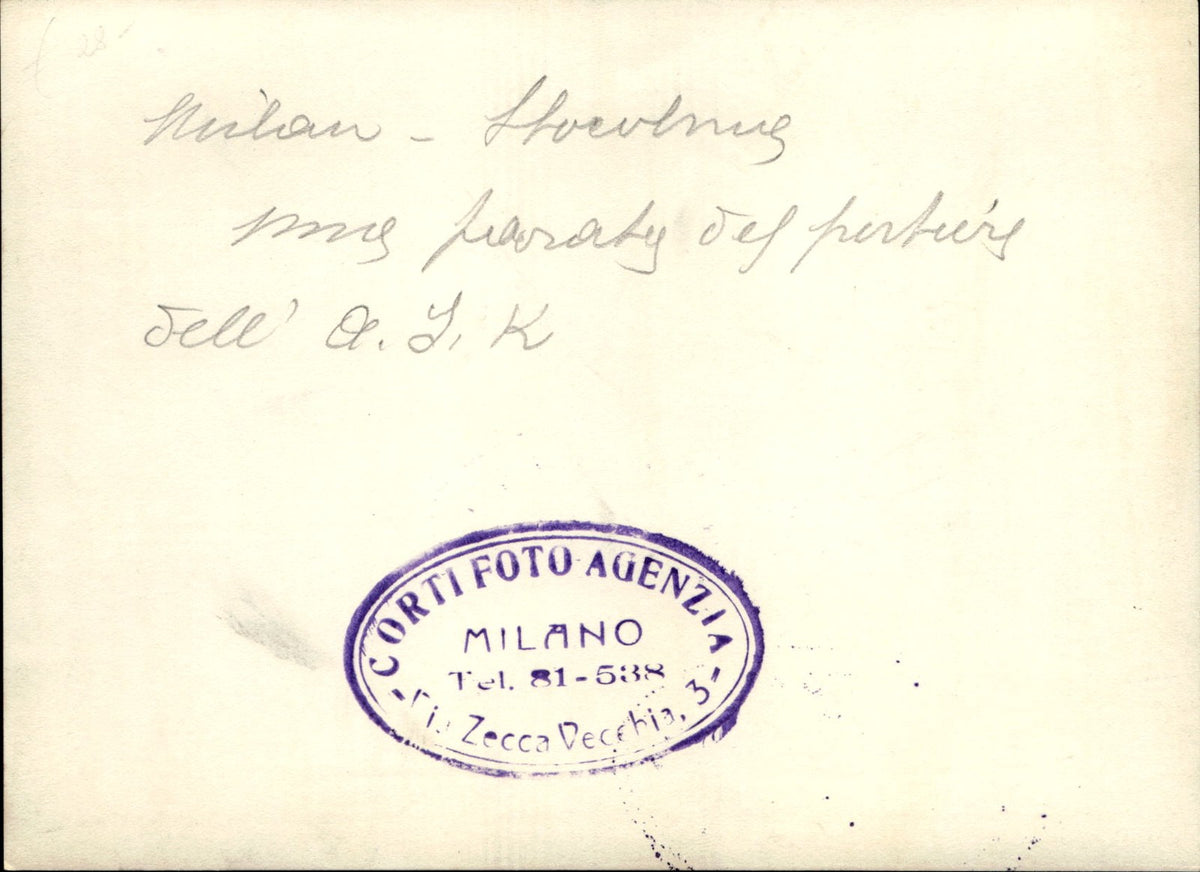 28
Milan - Stocolma
una parata del portiere
dell' A. I. K
CORTI FOTO AGENZIA
MILANO
Tel. 81-538
Via Zecca Vecchia, 3